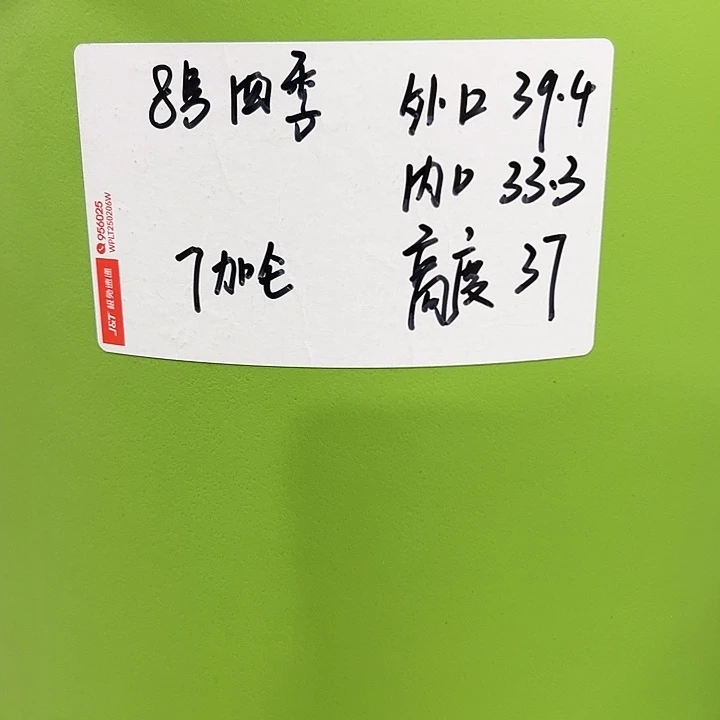 8号四季 外口 39.4
内口 33.3
7加仑 高度 37
956025
WPLT250206W
J&T 极兔速递